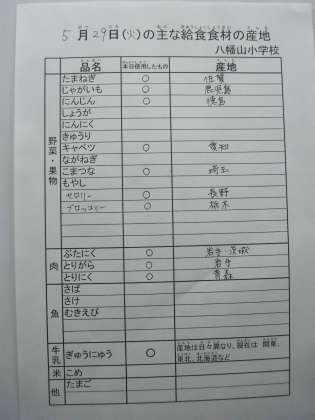 5月29日(火)の主な給食食材の産地
八幡山小学校
品名 本日使用したもの 産地
野菜・果物
たまねぎ ○ 佐賀
じゃがいも ○ 鹿児島
にんじん ○ 徳島
しょうが
にんにく
きゅうり
キャベツ ○ 愛知
ながねぎ
こまつな ○ 埼玉
もやし
セロリー ○ 長野
ブロッコリー ○ 栃木
肉
ぶたにく ○ 岩手・茨城
とりがら ○ 岩手
とりにく ○ 青森
魚
さば
さけ
むきえび
牛乳 ぎゅうにゅう ○ 産地は日々異なり、現在は 関東、
東北、北海道など
米 こめ
他 たまご